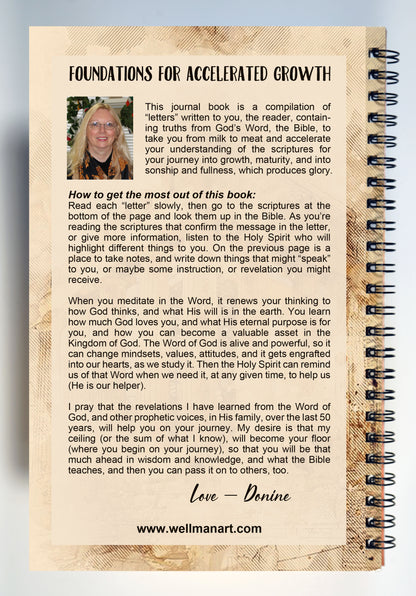 FOUNDATIONS FOR ACCELERATED GROWTH
This journal book is a compilation of
"letters" written to you, the reader, contain-
ing truths from God's Word, the Bible, to
take you from milk to meat and accelerate
your understanding of the scriptures for
your journey into growth, maturity, and into
sonship and fullness, which produces glory.
How to get the most out of this book:
Read each "letter" slowly, then go to the scriptures at the
bottom of the page and look them up in the Bible. As you're
reading the scriptures that confirm the message in the letter,
or give more information, listen to the Holy Spirit who will
highlight different things to you. On the previous page is a
place to take notes, and write down things that might "speak"
to you, or maybe some instruction, or revelation you might
receive.
When you meditate in the Word, it renews your thinking to
how God thinks, and what His will is in the earth. You learn
how much God loves you, and what His eternal purpose is for
you, and how you can become a valuable asset in the
Kingdom of God. The Word of God is alive and powerful, so it
can change mindsets, values, attitudes, and it gets engrafted
into our hearts, as we study it. Then the Holy Spirit can remind
us of that Word when we need it, at any given time, to help us
(He is our helper).
I pray that the revelations I have learned from the Word of
God, and other prophetic voices, in His family, over the last 50
years, will help you on your journey. My desire is that my
ceiling (or the sum of what I know), will become your floor
(where you begin on your journey), so that you will be that
much ahead in wisdom and knowledge, and what the Bible
teaches, and then you can pass it on to others, too.
Love — Donine
www.wellmanart.com